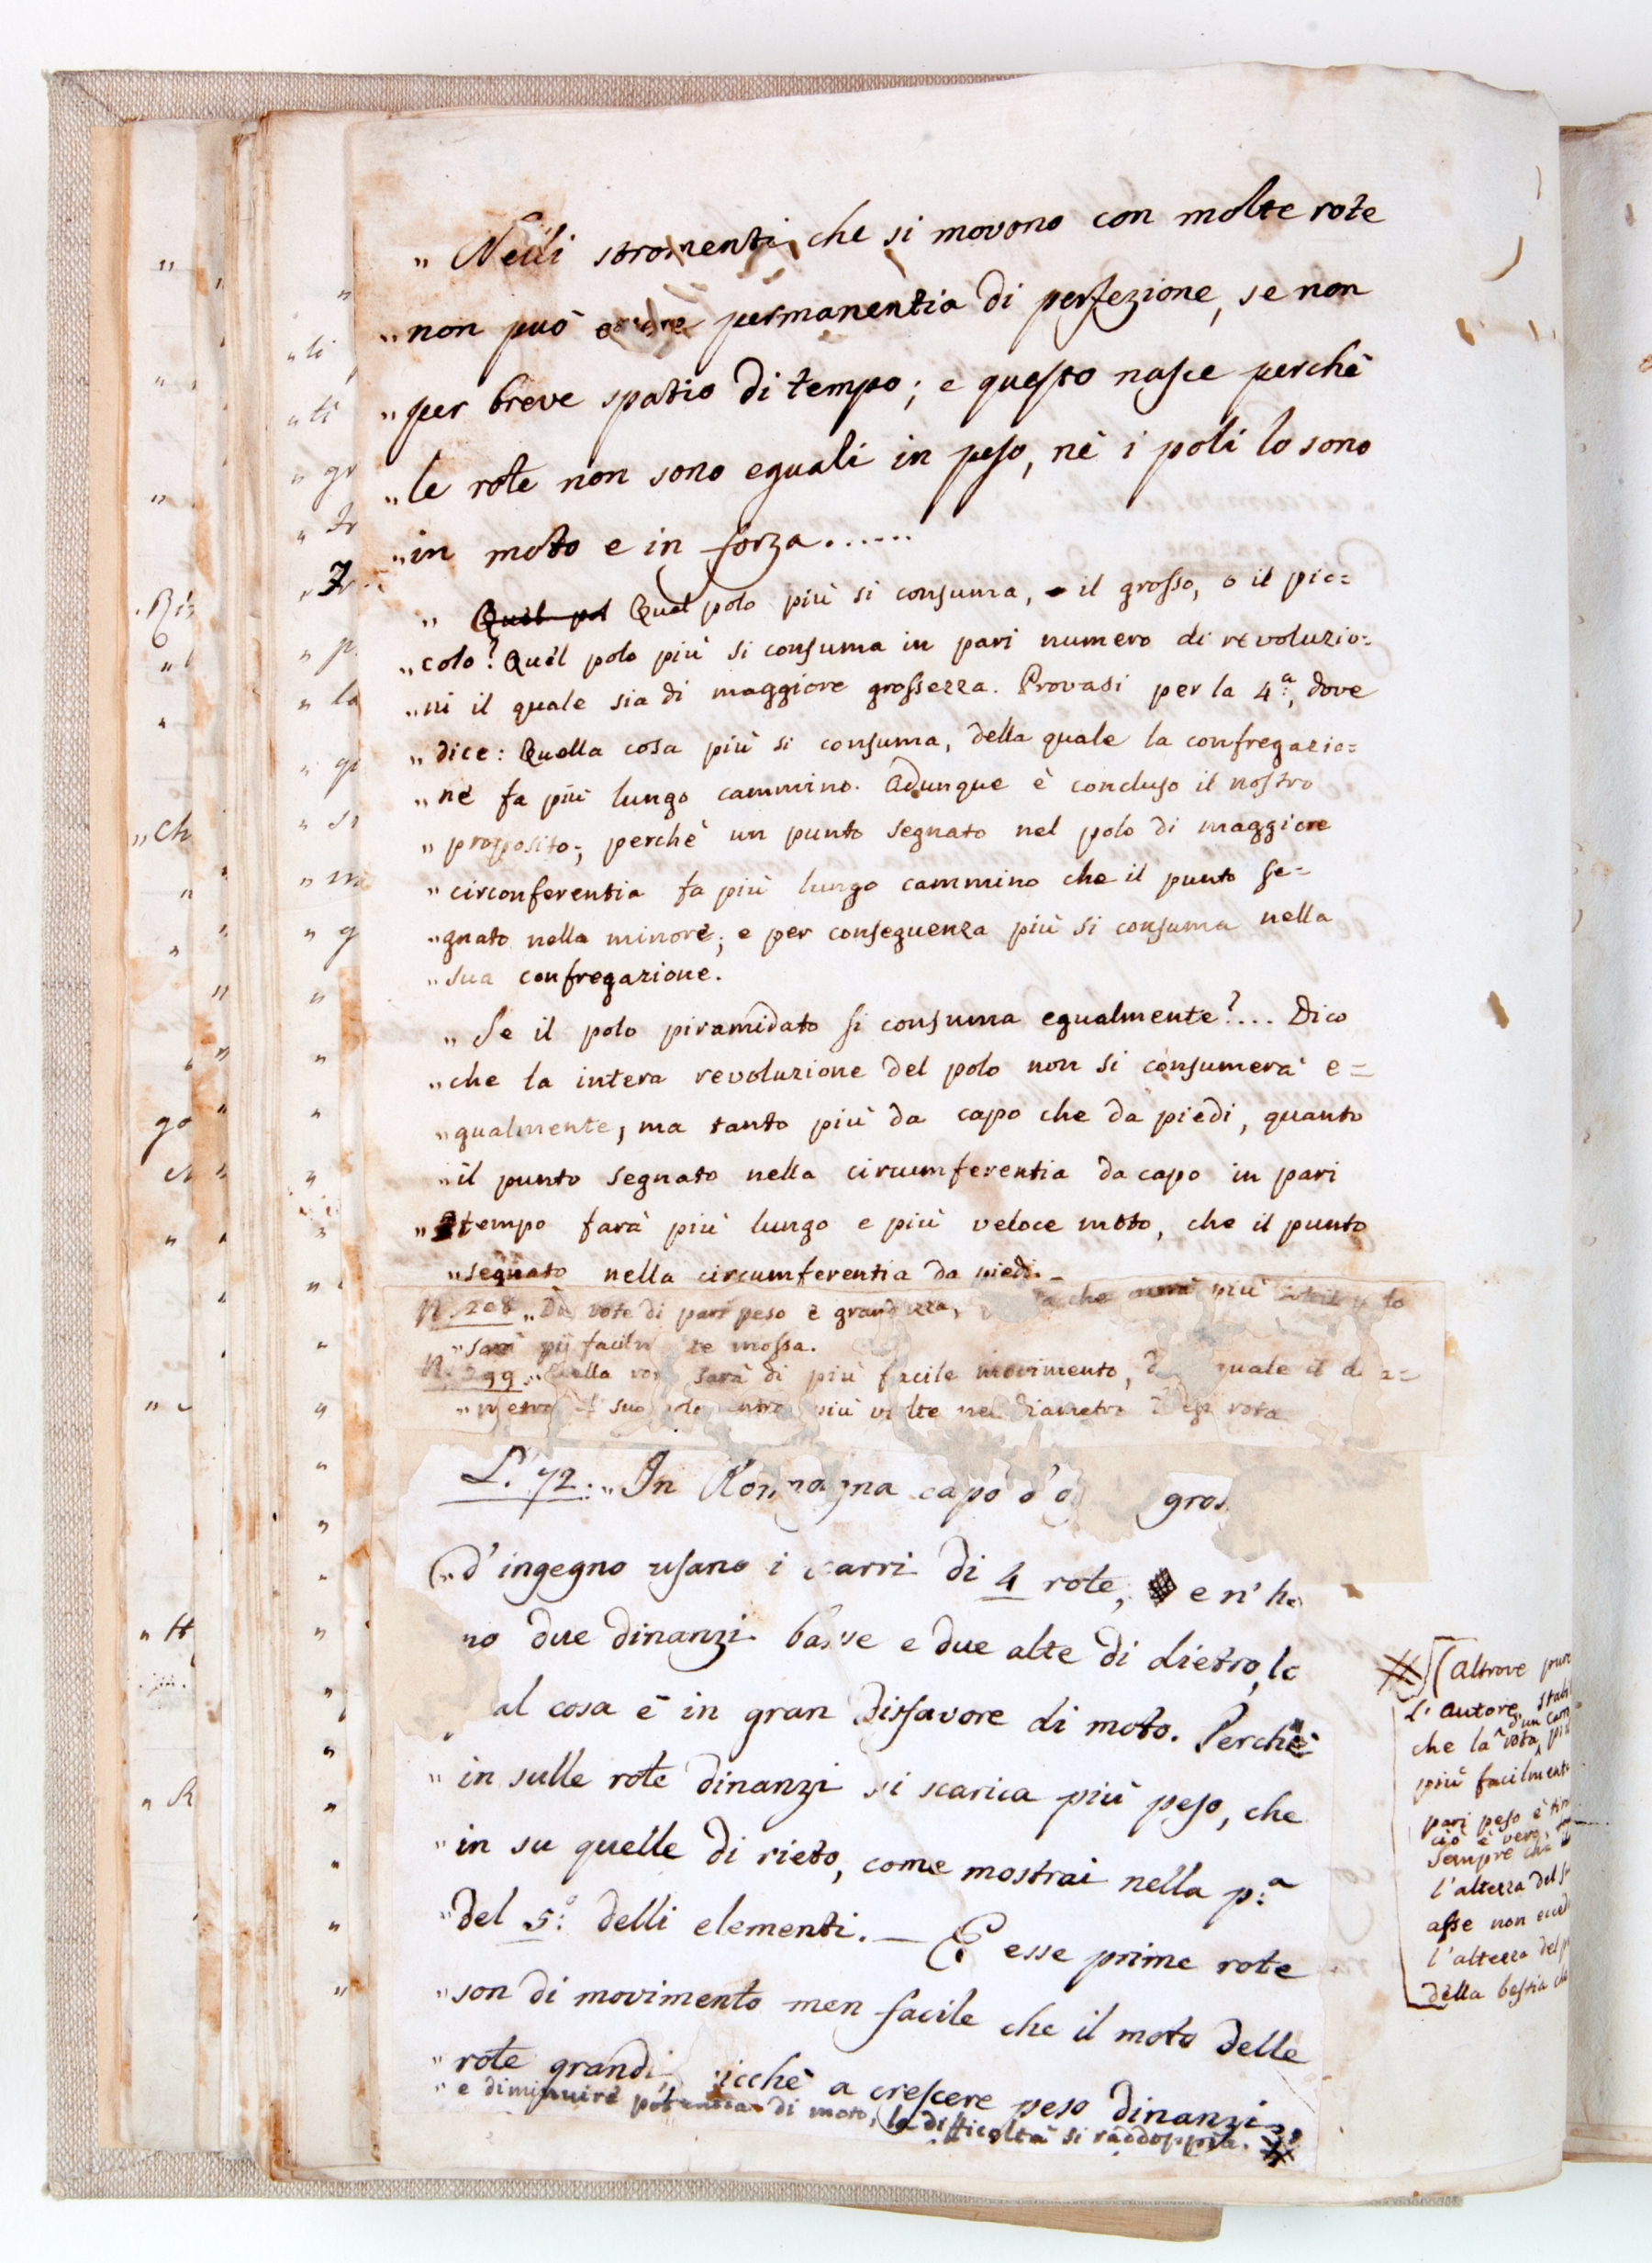 „ Nelli stromenti, che si movono con molte rote
„ non può essere permanentia di perfezione, se non
„ per breve spatio di tempo; e questo nasce perchè
„ le rote non sono eguali in peso, nè i poli lo sono
„ in moto e in forza......
„ Quel pol Qual polo più si consuma, o il grosso, o il pic=
„ colo? Quel polo più si consuma in pari numero di revoluzio=
„ ni il quale sia di maggiore grossezza. Provasi per la 4.ª, dove
„ dice: Quella cosa più si consuma, della quale la confregazio=
„ ne fa più lungo cammino. Adunque è concluso il nostro
„ proposito; perchè un punto segnato nel polo di maggiore
„ circonferentia fa più lungo cammino che il punto se=
„ gnato nella minore; e per conseguenza più si consuma nella
„ sua confregazione.
„ Se il polo piramidato si consuma egualmente?... Dico
„ che la intera revoluzione del polo non si consumerà e=
„ gualmente, ma tanto più da capo che da piedi, quanto
„ il punto segnato nella circumferentia da capo in pari
„ tempo farà più lungo e più veloce moto, che il punto
„ segnato nella circumferentia da piedi.
N. 208 „ rote di pari peso e grandezza, che più
„ sarà mossa.
„ sarà di più facile movimento, quale il
„ suo più volte nel diametro rota
L. 72. „ In Romagna capo d'
„ d'ingegno usano i carri di 4 rote, e n'ha
no due dinanzi basse e due alte di dietro, la
al cosa è in gran disfavore di moto. Perchè
„ in sulle rote dinanzi si scarica più peso, che
„ in su quelle di rieto, come mostrai nella p.ª
„ del 5.º delli elementi. — E esse prime rote
„ son di movimento men facile che il moto delle
„ rote grandi, sicchè a crescere peso dinanzi
„ e diminuire potentia di moto, la difficoltà si raddoppia. #
# (Altrove pure
l'Autore
che la rota d'un
più facilmente
pari peso è
ciò è vero,
sempre che
l'altezza del
asse non
l'altezza del
della bestia